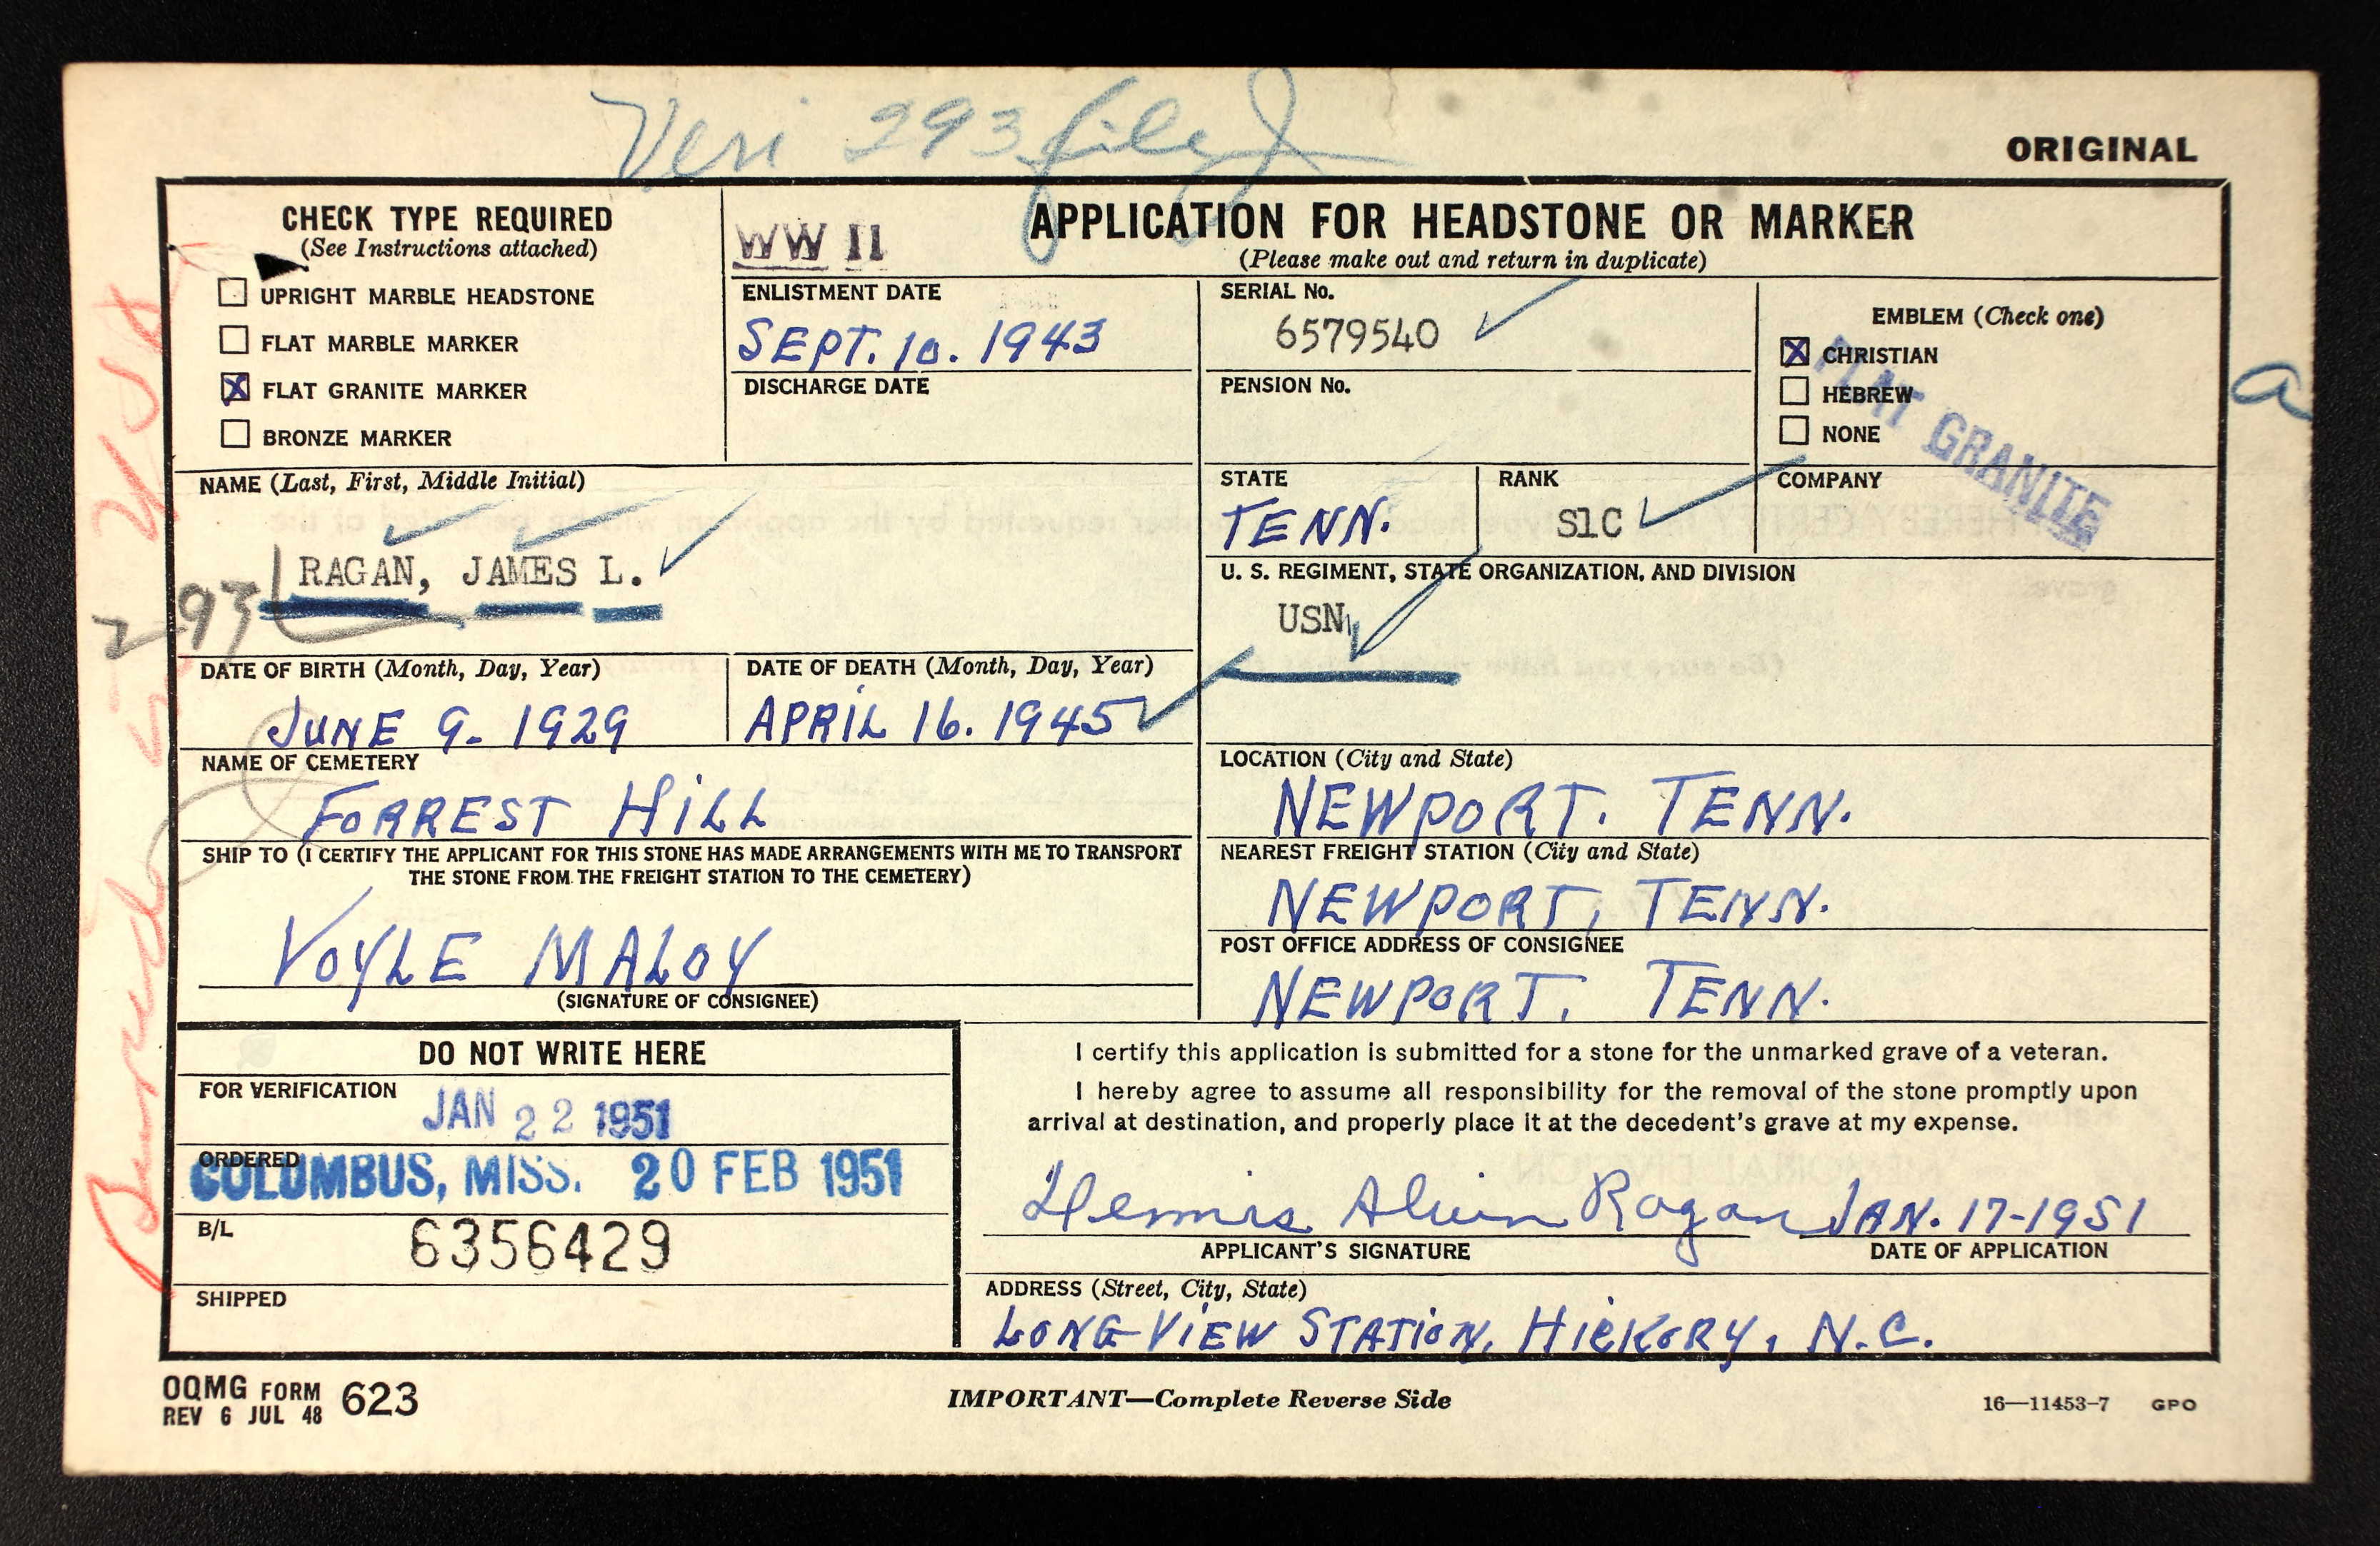 Veri 293 file
ORIGINAL
CHECK TYPE REQUIRED
(See Instructions attached)
UPRIGHT MARBLE HEADSTONE
FLAT MARBLE MARKER
X FLAT GRANITE MARKER
BRONZE MARKER
WW II
APPLICATION FOR HEADSTONE OR MARKER
(Please make out and return in duplicate)
ENLISTMENT DATE
SEPT. 10. 1943
DISCHARGE DATE
SERIAL No.
6579540
PENSION No.
EMBLEM (Check one)
X CHRISTIAN
HEBREW
NONE
FLAT GRANITE
a
NAME (Last, First, Middle Initial)
RAGAN, JAMES L.
293
STATE
TENN.
RANK
S1C
COMPANY
U. S. REGIMENT, STATE ORGANIZATION, AND DIVISION
USN
DATE OF BIRTH (Month, Day, Year)
JUNE 9- 1929
DATE OF DEATH (Month, Day, Year)
APRIL 16. 1945
NAME OF CEMETERY
FORREST HILL
LOCATION (City and State)
NEWPORT. TENN.
SHIP TO (I CERTIFY THE APPLICANT FOR THIS STONE HAS MADE ARRANGEMENTS WITH ME TO TRANSPORT
THE STONE FROM THE FREIGHT STATION TO THE CEMETERY)
VOYLE MALOY
(SIGNATURE OF CONSIGNEE)
NEAREST FREIGHT STATION (City and State)
NEWPORT, TENN.
POST OFFICE ADDRESS OF CONSIGNEE
NEWPORT, TENN.
DO NOT WRITE HERE
FOR VERIFICATION
JAN 22 1951
ORDERED
COLUMBUS, MISS. 20 FEB 1951
B/L
6356429
SHIPPED
I certify this application is submitted for a stone for the unmarked grave of a veteran.
I hereby agree to assume all responsibility for the removal of the stone promptly upon
arrival at destination, and properly place it at the decedent's grave at my expense.
Alvin Ragan JAN. 17-1951
APPLICANT'S SIGNATURE
DATE OF APPLICATION
ADDRESS (Street, City, State)
LONG-VIEW STATION, HICKORY, N.C.
OQMG FORM 623
REV 6 JUL 48
IMPORTANT—Complete Reverse Side
16—11453-7 GPO